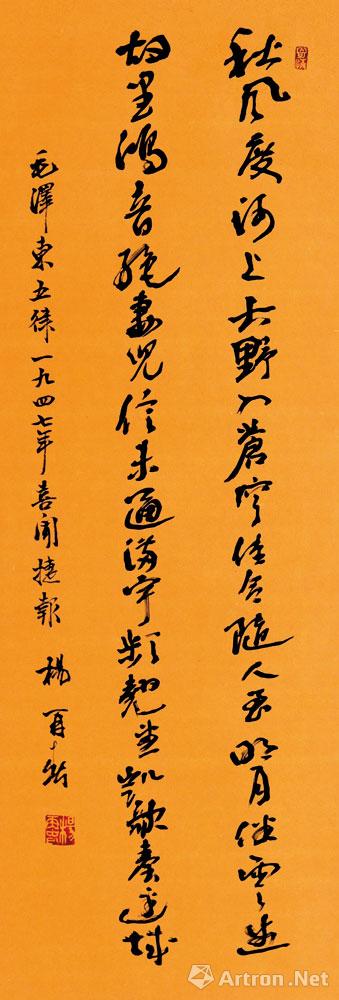 秋風度河上大野入蒼穹佳令隨人至明月傍雲生
故里鴻音絕妻兒信未通滿宇頻翹望凱歌奏邊城
毛澤東五律一九四七年喜聞捷報 楊再春
Artron.Net